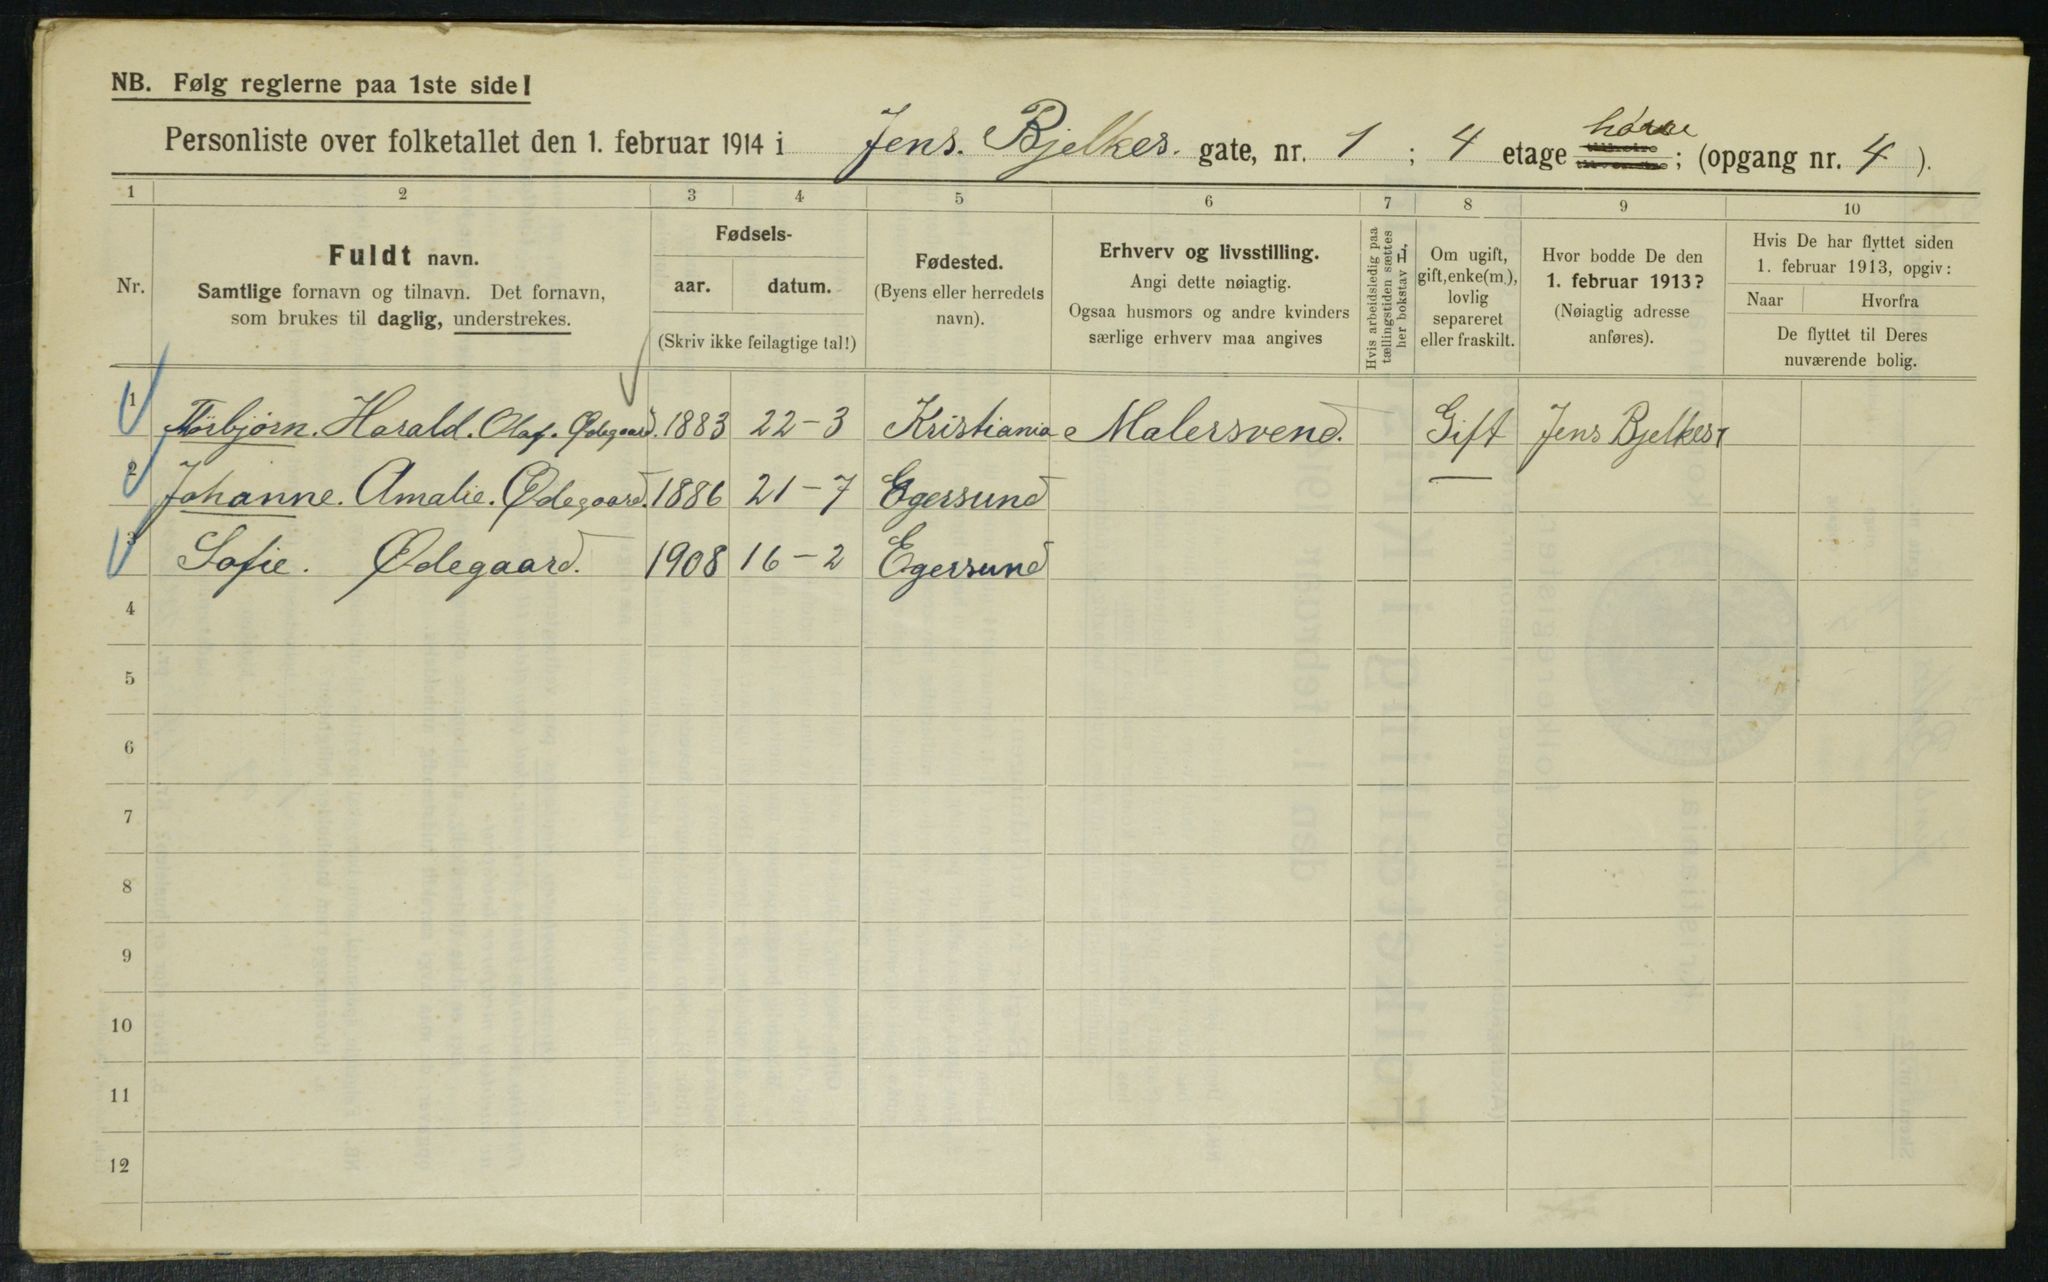 NB. Følg reglerne paa 1ste side!
Personliste over folketallet den 1. februar 1914 i Jens. Bjelkes. gate, nr. 1 ; 4 etage ; (opgang nr. 4 ).
1 2 3 4 5 6 7 8 9 10
Nr.
Fuldt navn.
Samtlige fornavn og tilnavn. Det fornavn,
som brukes til daglig, understrekes.
Fødsels-
aar. datum.
(Skriv ikke feilagtige tal!)
Fødested.
(Byens eller herredets
navn).
Erhverv og livsstilling.
Angi dette nøiagtig.
Ogsaa husmors og andre kvinders
særlige erhverv maa angives
Hvis arbeidsledig paa
tællingstiden sættes
her bokstav L.
Om ugift,
gift, enke(m.),
lovlig
separeret
eller fraskilt.
Hvor bodde De den
1. februar 1913?
(Nøiagtig adresse
anføres).
Hvis De har flyttet siden
1. februar 1913, opgiv:
Naar Hvorfra
De flyttet til Deres
nuværende bolig.
1 Torbjørn. Harald. Olaf. Ødegaard. 1883 22-3 Kristiania Malersvend. Gift Jens Bjelkes 1
2 Johanne. Amalie. Ødegaard. 1886 21-7 Egersund
3 Sofie. Ødegaard. 1908 16-2 Egersund
4
5
6
7
8
9
10
11
12